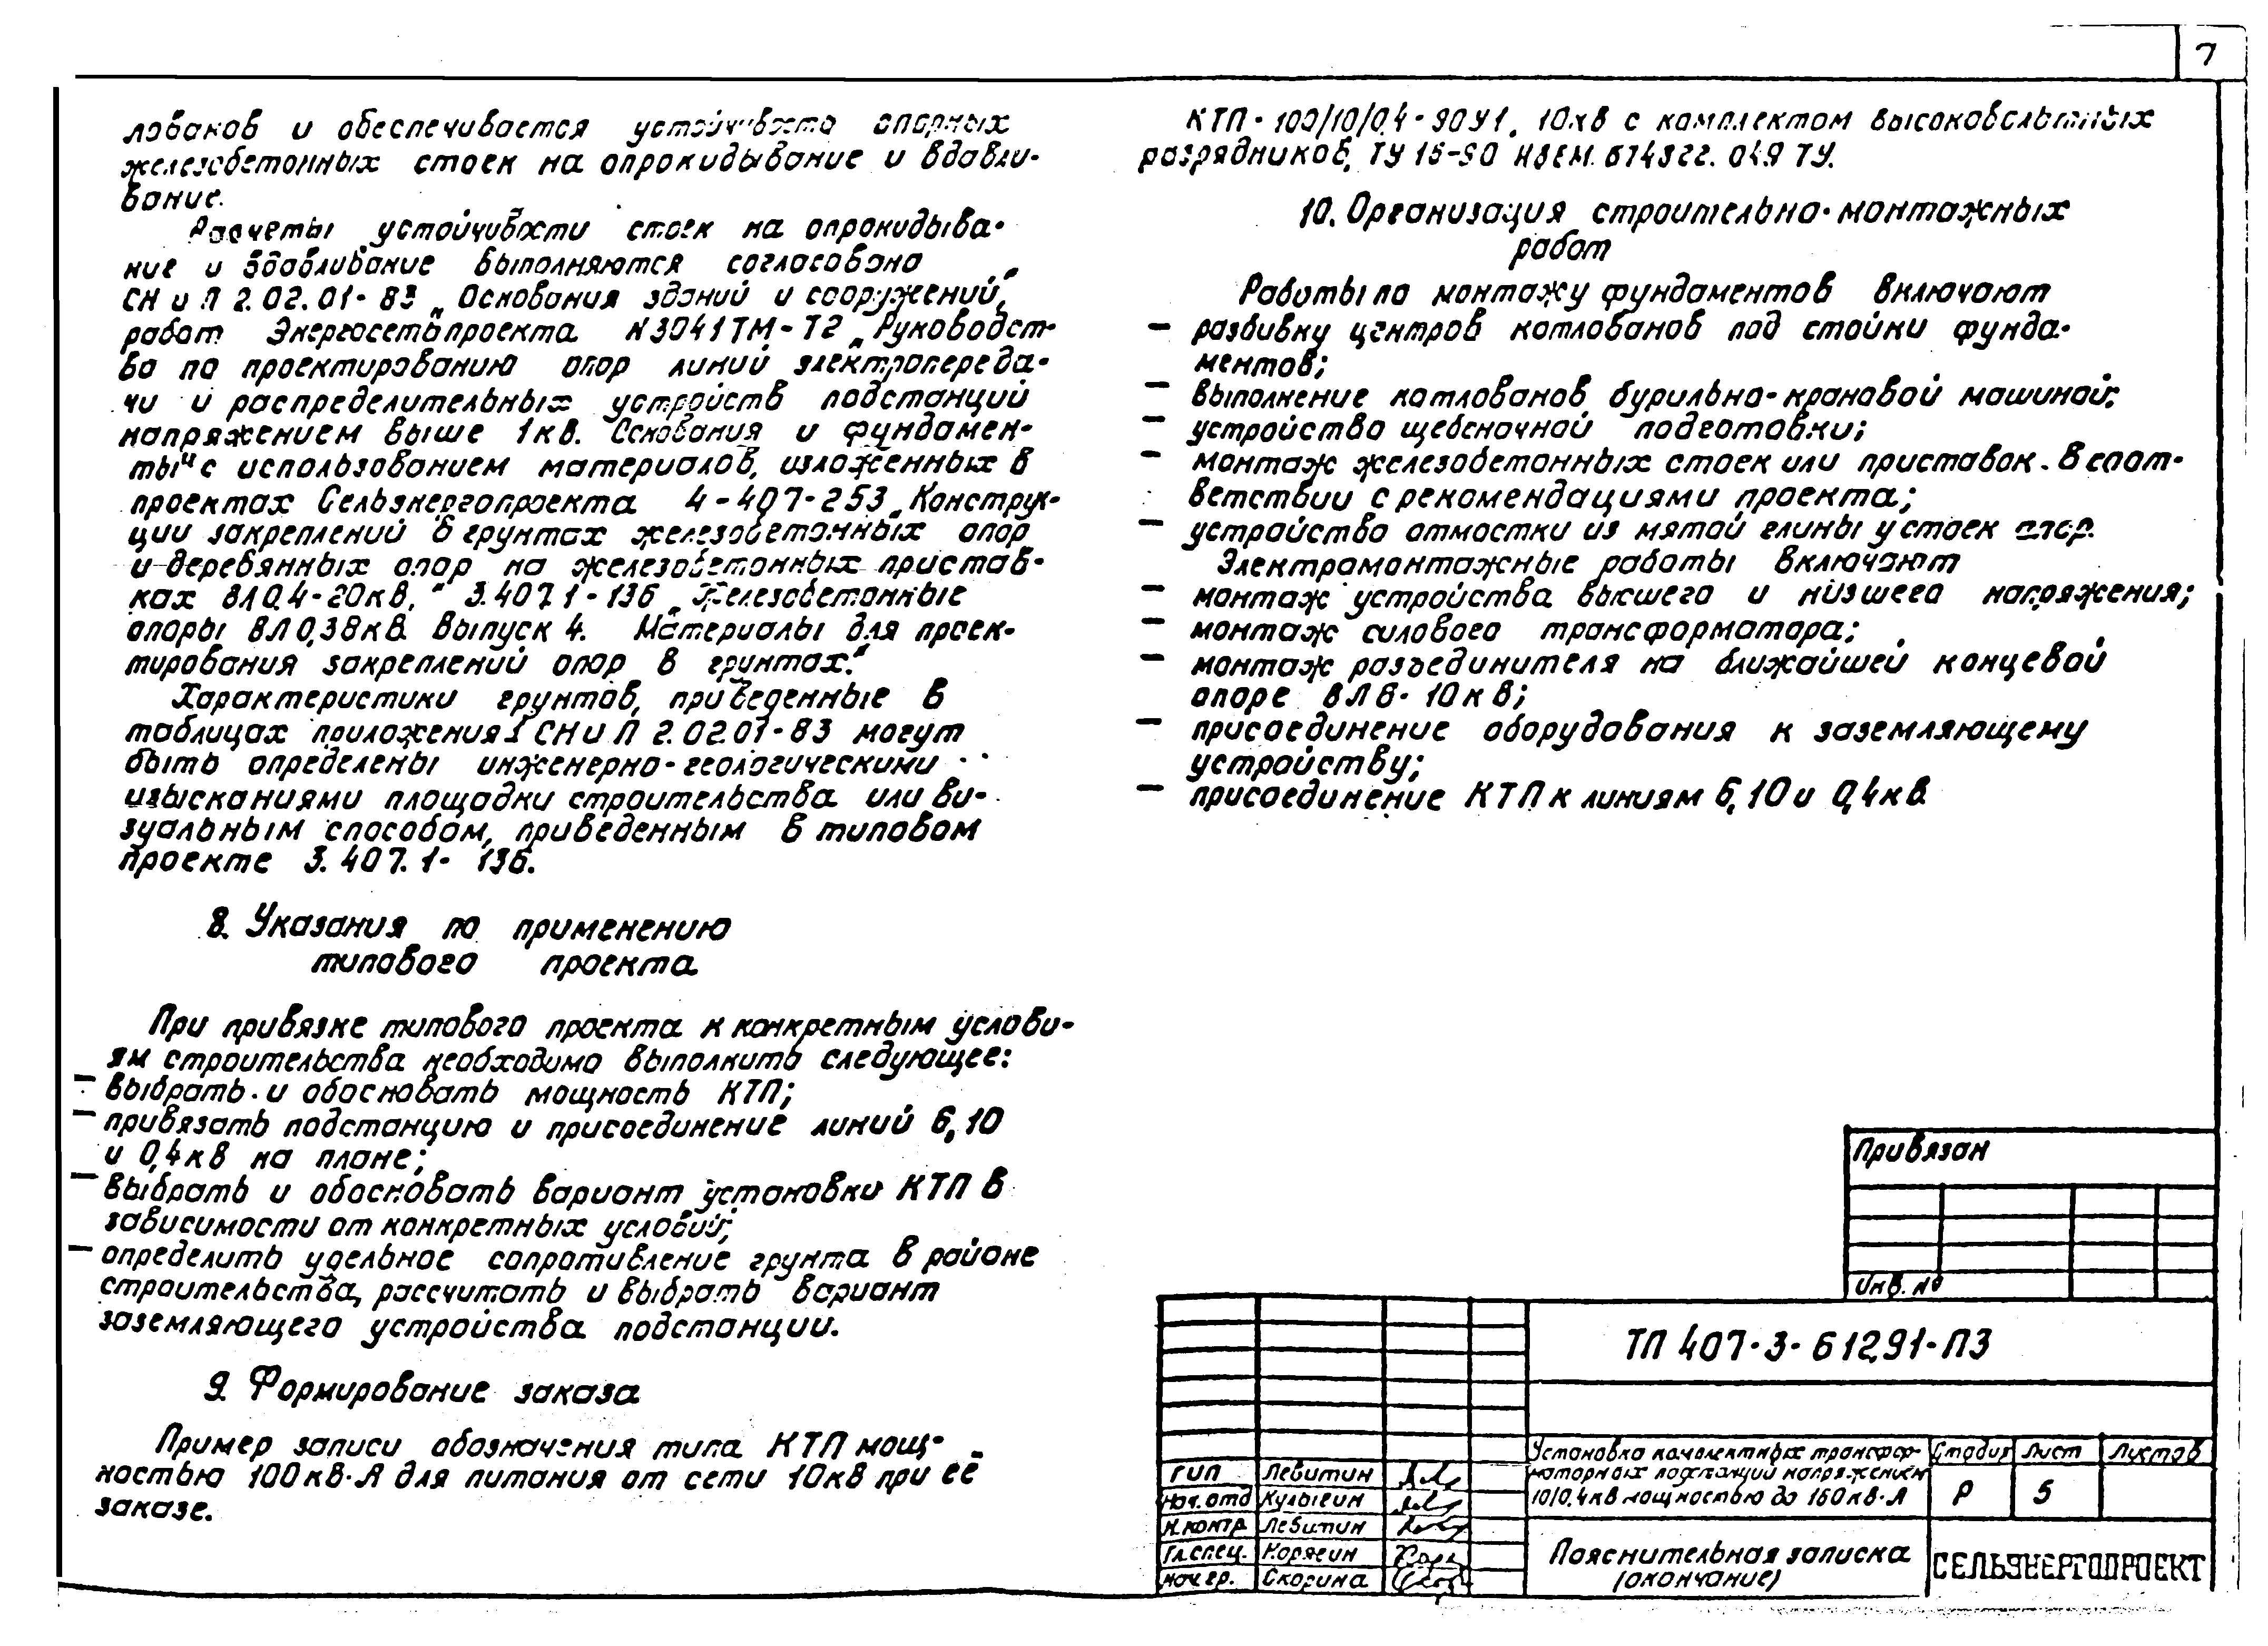 7
лованов и обеспечивается устойчивость опорных
железобетонных стоек на опрокидывание и вдавли-
вание.
Расчеты устойчивости стоек на опрокидыва-
ние и вдавливание выполняются согласовано
СНиП 2.02.01-83 „Основания зданий и сооружений,"
работ Энергосетьпроекта N3041ТМ-Т2 „Руководст-
ва по проектированию опор линий электропереда-
чи и распределительных устройств подстанций
напряжением выше 1кв. Основания и фундамен-
ты" с использованием материалов, изложенных в
проектах Сельэнергопроекта 4-407-253 „Конструк-
ции закреплений в грунтах железобетонных опор
и деревянных опор на железобетонных пристав-
ках ВЛ 0,4-20кв," 3.407.1-136 „Железобетонные
опоры ВЛ 0,38кв. Выпуск 4. Материалы для проек-
тирования закреплений опор в грунтах."
Характеристики грунтов, приведенные в
таблицах приложения I СНиП 2.02.01-83 могут
быть определены инженерно-геологическими
изысканиями площадки строительства или ви-
зуальным способом, приведенным в типовом
проекте 3.407.1-136.
8. Указания по применению
типового проекта
При привязке типового проекта к конкретным услови-
ям строительства необходимо выполнить следующее:
— выбрать и обосновать мощность КТП;
— привязать подстанцию и присоединение линий 6,10
и 0,4кв на плане;
— выбрать и обосновать вариант установки КТП в
зависимости от конкретных условий;
— определить удельное сопротивление грунта в районе
строительства, рассчитать и выбрать вариант
заземляющего устройства подстанции.
9. Формирование заказа
Пример записи обозначения типа КТП мощ-
ностью 100кв·А для питания от сети 10кв при её
заказе.
КТП-100/10/0,4-90У1, 10кв с комплектом высоковольтных
разрядников, ТУ 16-90 ИВЕМ. 674822. 049 ТУ.
10. Организация строительно-монтажных
работ
Работы по монтажу фундаментов включают
— разбивку центров котлованов под стойки фунда-
ментов;
— выполнение котлованов бурильно-крановой машиной;
— устройство щебеночной подготовки;
— монтаж железобетонных стоек или приставок. В соот-
ветствии с рекомендациями проекта;
— устройство отмостки из мятой глины у стоек опор.
Электромонтажные работы включают
— монтаж устройства высшего и низшего напряжения;
— монтаж силового трансформатора;
— монтаж разъединителя на ближайшей концевой
опоре ВЛ 6-10кв;
— присоединение оборудования к заземляющему
устройству;
— присоединение КТП к линиям 6,10 и 0,4кв
Привязан
Инв. №
ТП 407-3-612.91-ПЗ
Установка комплектных трансфор-
маторных подстанций напряжением
10/0,4кв мощностью до 160кв·А
Стадия Лист Листов
Р 5
ГИП Левитин
Нач.отд Кулыгин
Н.контр Левитин
Гл.спец. Корягин
Нач.гр. Скорина
Пояснительная записка
(окончание)
СЕЛЬЭНЕРГОПРОЕКТ